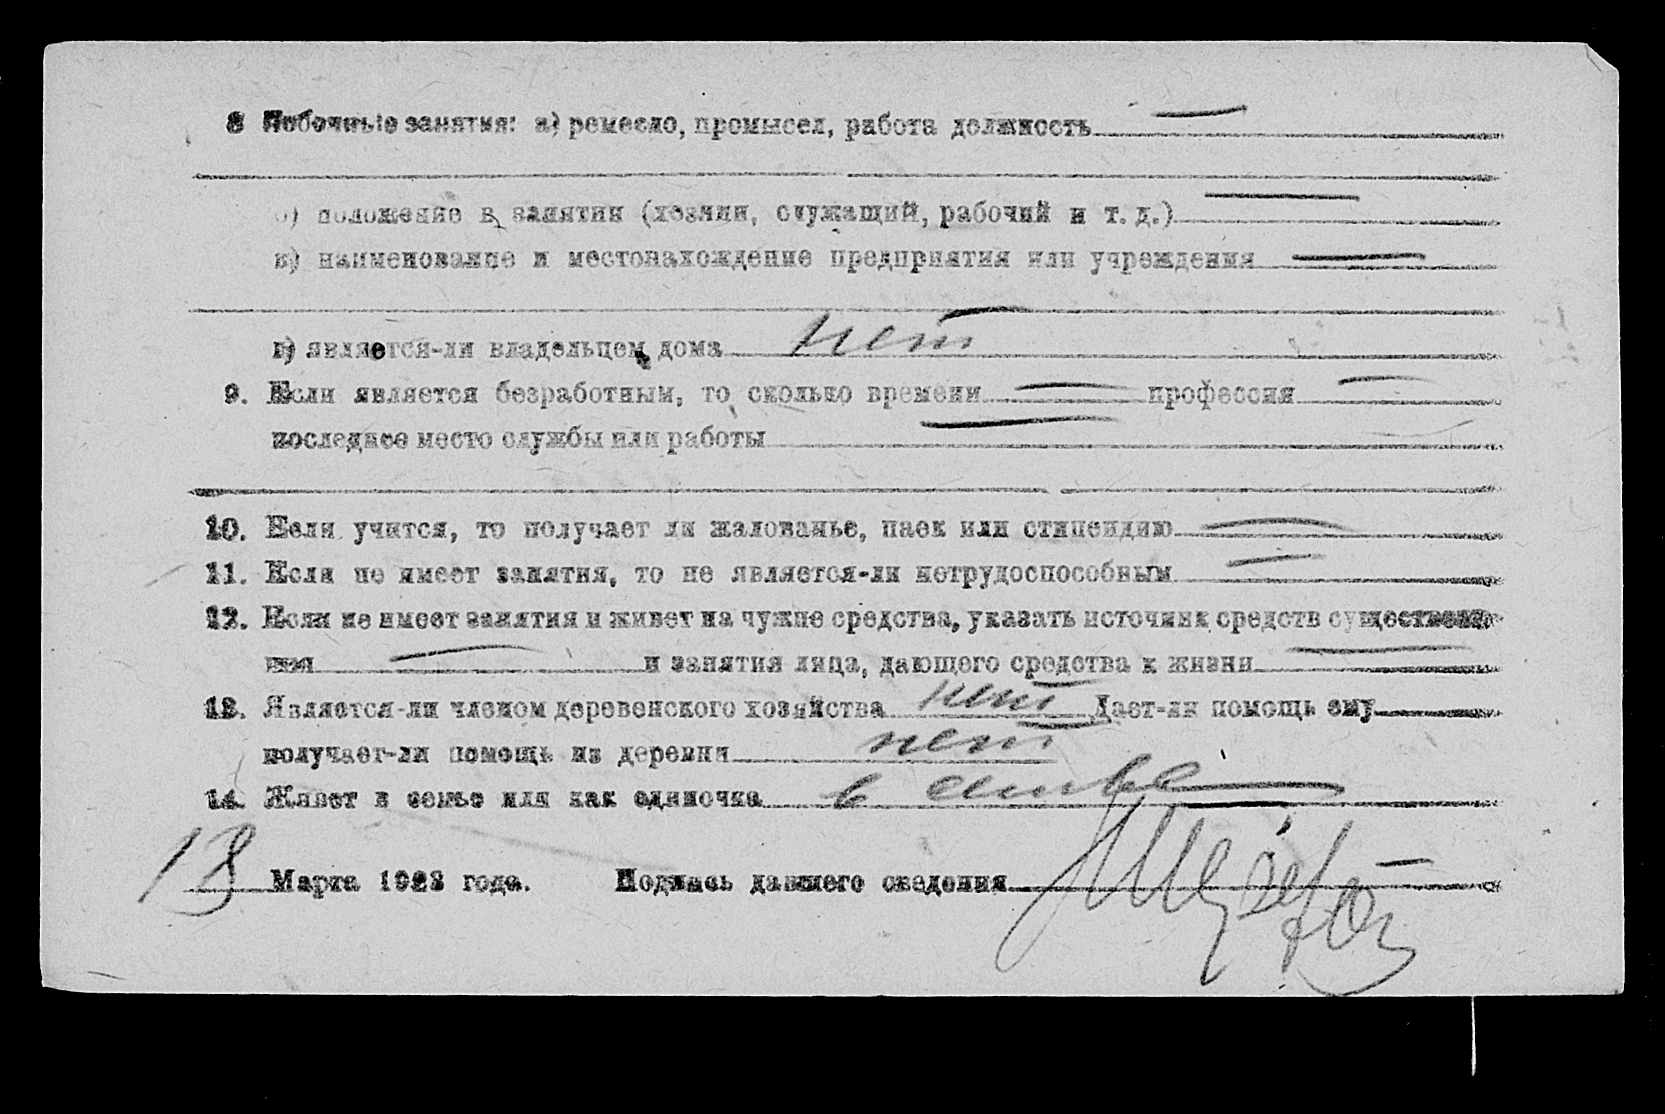 8 Побочные занятия: а) ремесло, промысел, работа должность —
б) положение в занятии (хозяин, служащий, рабочий и т. д.) —
в) наименование и местонахождение предприятия или учреждения —
г) является-ли владельцем дома нет
9. Если является безработным, то сколько времени — профессия —
последнее место службы или работы —
10. Если учится, то получает ли жалованье, паек или стипендию —
11. Если не имеет занятия, то не является-ли нетрудоспособным —
12. Если не имеет занятия и живет на чужие средства, указать источник средств существова-
ния — и занятия лица, дающего средства к жизни —
13. Является-ли членом деревенского хозяйства нет Дает-ли помощь ему
получает-ли помощь из деревни нет
14. Живет в семье или как одиночка в семье
18 Марта 1923 года. Подпись давшего сведения